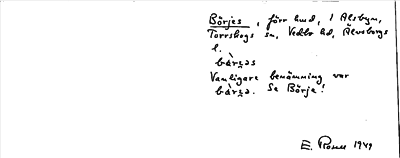 Börjes, förr hmd, i Alsbyn,
Torrskogs sn, Vedbo hd, Älvsborgs
l.
bàrᶎəs
Vanligare benämning var
bàrᶎə. Se Börje!
E. Rosell 1949